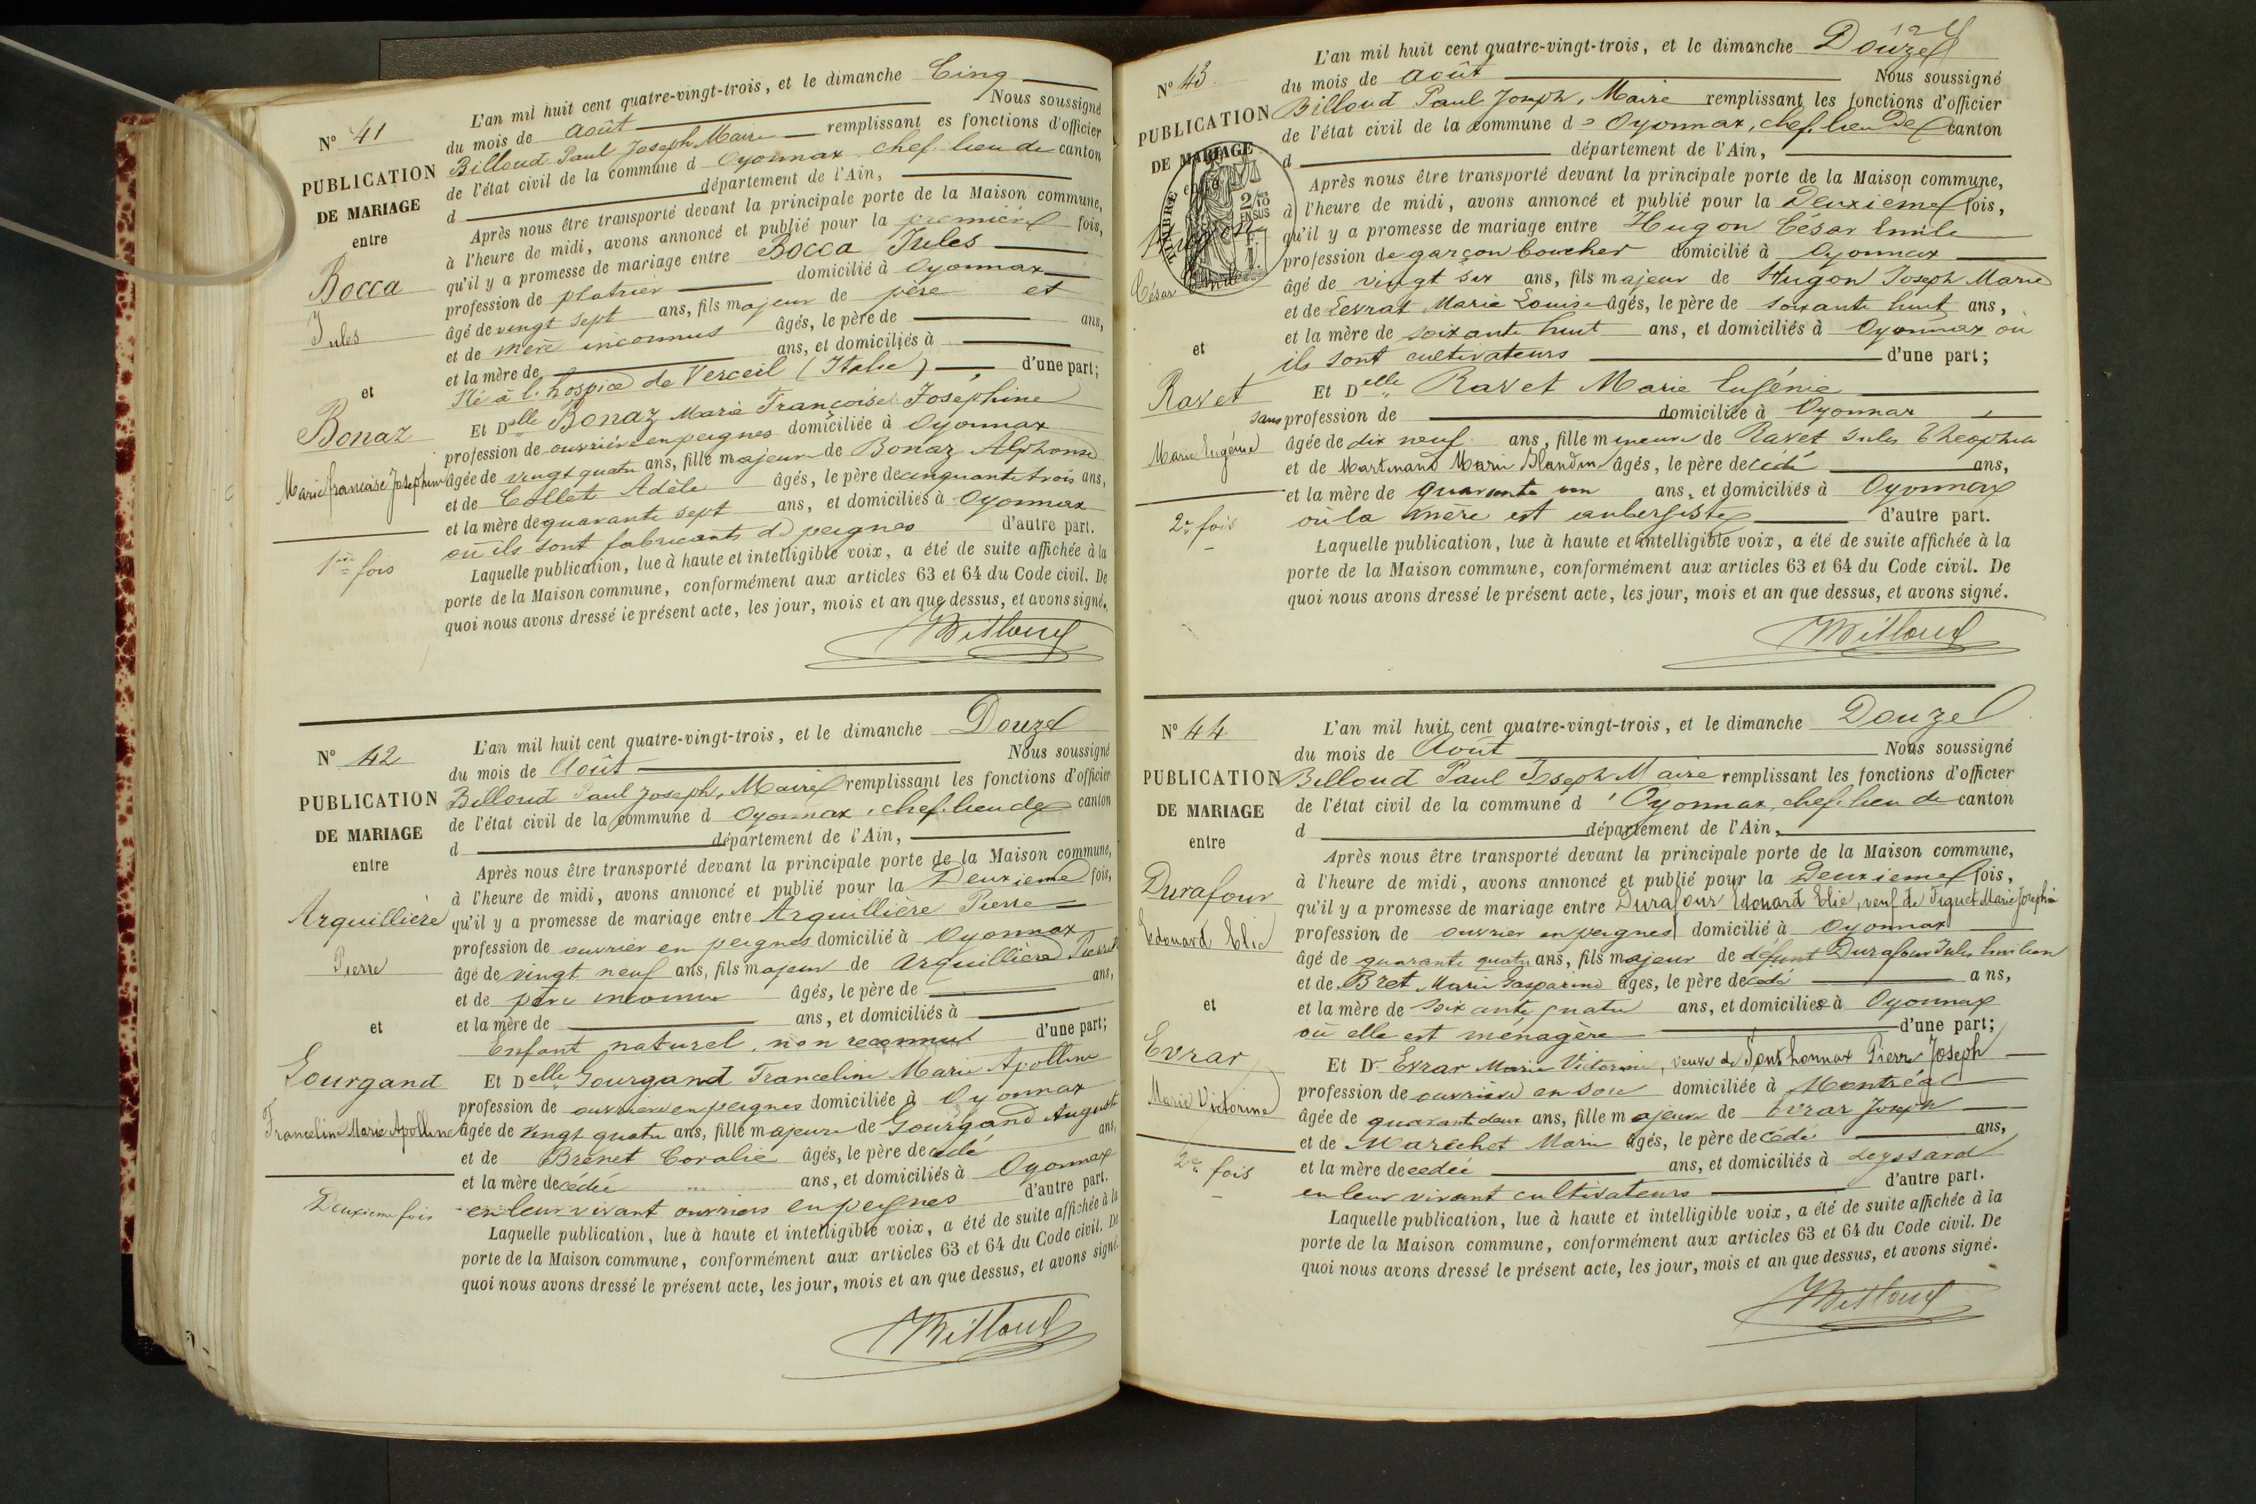 N° 41
PUBLICATION
DE MARIAGE
entre
Bocca
Jules
et
Bonaz
Marie francoise Josephine
1ère fois
L'an mil huit cent quatre-vingt-trois, et le dimanche Cinq
du mois de Août Nous soussigné
Billoud Paul Joseph Maire remplissant es fonctions d'officier
de l'état civil de la commune d Oyonnax chef lieu de canton
d département de l'Ain,
Après nous être transporté devant la principale porte de la Maison commune,
à l'heure de midi, avons annoncé et publié pour la première fois,
qu'il y a promesse de mariage entre Bocca Jules
profession de platrier domicilié à Oyonnax
âgé de vingt sept ans, fils majeur de père et
et de mère inconnus âgés, le père de ans,
et la mère de ans, et domiciliés à
Né à l'hospice de Verceil (Italie) d'une part;
Et Delle Bonaz Marie Françoise Joséphine
profession de ouvrière en peignes domiciliée à Oyonnax
âgée de vingt quatre ans, fille majeure de Bonaz Alphonse
et de Collet Adèle âgés, le père de cinquante trois ans,
et la mère de quarante sept ans, et domiciliés à Oyonnax
où ils sont fabricants de peignes d'autre part.
Laquelle publication, lue à haute et intelligible voix, a été de suite affichée à la
porte de la Maison commune, conformément aux articles 63 et 64 du Code civil. De
quoi nous avons dressé le présent acte, les jour, mois et an que dessus, et avons signé.
Billoud
N° 42
PUBLICATION
DE MARIAGE
entre
Arquillière
Pierre
et
Gourgand
Franceline Marie Apolline
Deuxieme fois
L'an mil huit cent quatre-vingt-trois, et le dimanche Douze
du mois de Août Nous soussigné
Billoud Paul Joseph, Maire remplissant les fonctions d'officier
de l'état civil de la commune d Oyonnax, chef lieu de canton
d département de l'Ain,
Après nous être transporté devant la principale porte de la Maison commune,
à l'heure de midi, avons annoncé et publié pour la Deuxieme fois,
qu'il y a promesse de mariage entre Arquillière Pierre
profession de ouvrier en peignes domicilié à Oyonnax
âgé de vingt neuf ans, fils majeur de Arquillière Pierrette
et de père inconnu âgés, le père de ans,
et la mère de ans, et domiciliés à
Enfant naturel, non reconnu d'une part;
Et Delle Gourgand Franceline Marie Apolline
profession de ouvrière en peignes domiciliée à Oyonnax
âgée de vingt quatre ans, fille majeure de Gourgand Auguste
et de Brenet Coralie âgés, le père décédé ans,
et la mère décédée ans, et domiciliés à Oyonnax
en leur vivant ouvriers en peignes d'autre part.
Laquelle publication, lue à haute et intelligible voix, a été de suite affichée à la
porte de la Maison commune, conformément aux articles 63 et 64 du Code civil. De
quoi nous avons dressé le présent acte, les jour, mois et an que dessus, et avons signé.
Billoud
N° 43
PUBLICATION
DE MARIAGE
entre
TIMBRE
2/10
EN SUS
Hugon
César Emile
et
Ravet
Marie Eugénie
2e fois
L'an mil huit cent quatre-vingt-trois, et le dimanche Douze
du mois de Août Nous soussigné
Billoud Paul Joseph, Maire remplissant les fonctions d'officier
de l'état civil de la commune d Oyonnax, chef lieu de canton
d département de l'Ain,
Après nous être transporté devant la principale porte de la Maison commune,
à l'heure de midi, avons annoncé et publié pour la Deuxieme fois,
qu'il y a promesse de mariage entre Hugon César Emile
profession de garçon boucher domicilié à Oyonnax
âgé de vingt six ans, fils majeur de Hugon Joseph Marie
et de Levrat Marie Louise âgés, le père de soixante huit ans,
et la mère de soixante huit ans, et domiciliés à Oyonnax où
ils sont cultivateurs d'une part;
Et Delle Ravet Marie Eugénie
sans profession de domiciliée à Oyonnax
âgée de dix neuf ans, fille mineure de Ravet Jules Theophile
et de Martinand Marie Blandine âgés, le père décédé ans,
et la mère de quarante un ans, et domiciliés à Oyonnax
où la mère est aubergiste d'autre part.
Laquelle publication, lue à haute et intelligible voix, a été de suite affichée à la
porte de la Maison commune, conformément aux articles 63 et 64 du Code civil. De
quoi nous avons dressé le présent acte, les jour, mois et an que dessus, et avons signé.
Billoud
N° 44
PUBLICATION
DE MARIAGE
entre
Durafour
Edouard Elie
et
Evrar
Marie Victorine
2e fois
L'an mil huit cent quatre-vingt-trois, et le dimanche Douze
du mois de Août Nous soussigné
Billoud Paul Joseph Maire remplissant les fonctions d'officier
de l'état civil de la commune d'Oyonnax, chef lieu de canton
d département de l'Ain,
Après nous être transporté devant la principale porte de la Maison commune,
à l'heure de midi, avons annoncé et publié pour la Deuxieme fois,
qu'il y a promesse de mariage entre Durafour Edouard Elie, veuf de Figuet Marie Joséphine
profession de ouvrier en peignes domicilié à Oyonnax
âgé de quarante quatre ans, fils majeur de défunt Durafour Jules
et de Bret Marie Gasparine âgés, le père décédé ans,
et la mère de soixante quatre ans, et domiciliés à Oyonnax
où elle est ménagère d'une part;
Et De Evrar Marie Victorine, veuve de Ponthonnax Pierre Joseph
profession de ouvrière en soie domiciliée à Montréal
âgée de quarante deux ans, fille majeure de Evrar Joseph
et de Maréchet Marie âgés, le père décédé ans,
et la mère décédée ans, et domiciliés à Leyssard
en leur vivant cultivateurs d'autre part.
Laquelle publication, lue à haute et intelligible voix, a été de suite affichée à la
porte de la Maison commune, conformément aux articles 63 et 64 du Code civil. De
quoi nous avons dressé le présent acte, les jour, mois et an que dessus, et avons signé.
Billoud